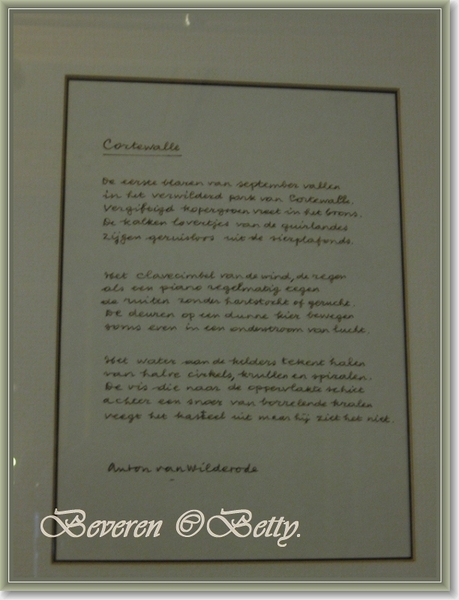 Cortewalle
De eerste blaren van september vallen
in het verwilderd park van Cortewalle.
Vergiftigd kopergroen vreet in het brons.
De kalken lovertjes van de guirlandes
zijgen geruisloos uit de siesplafonds.
Het clavecimbel van de wind, de regen
als een piano regelmatig tegen
de ruiten zonder hartstocht of gerucht.
De deuren op een dunne kier bewegen
soms even in een onderstroom van lucht.
Het water aan de kelders tekent halen
van halve cirkels, krullen en spiralen.
De vis die naar de oppervlakte schiet
achter een snoer van borrelende kralen
veegt het kasteel uit maar hij ziet het niet.
Anton van Wilderode
Beveren ©Betty.